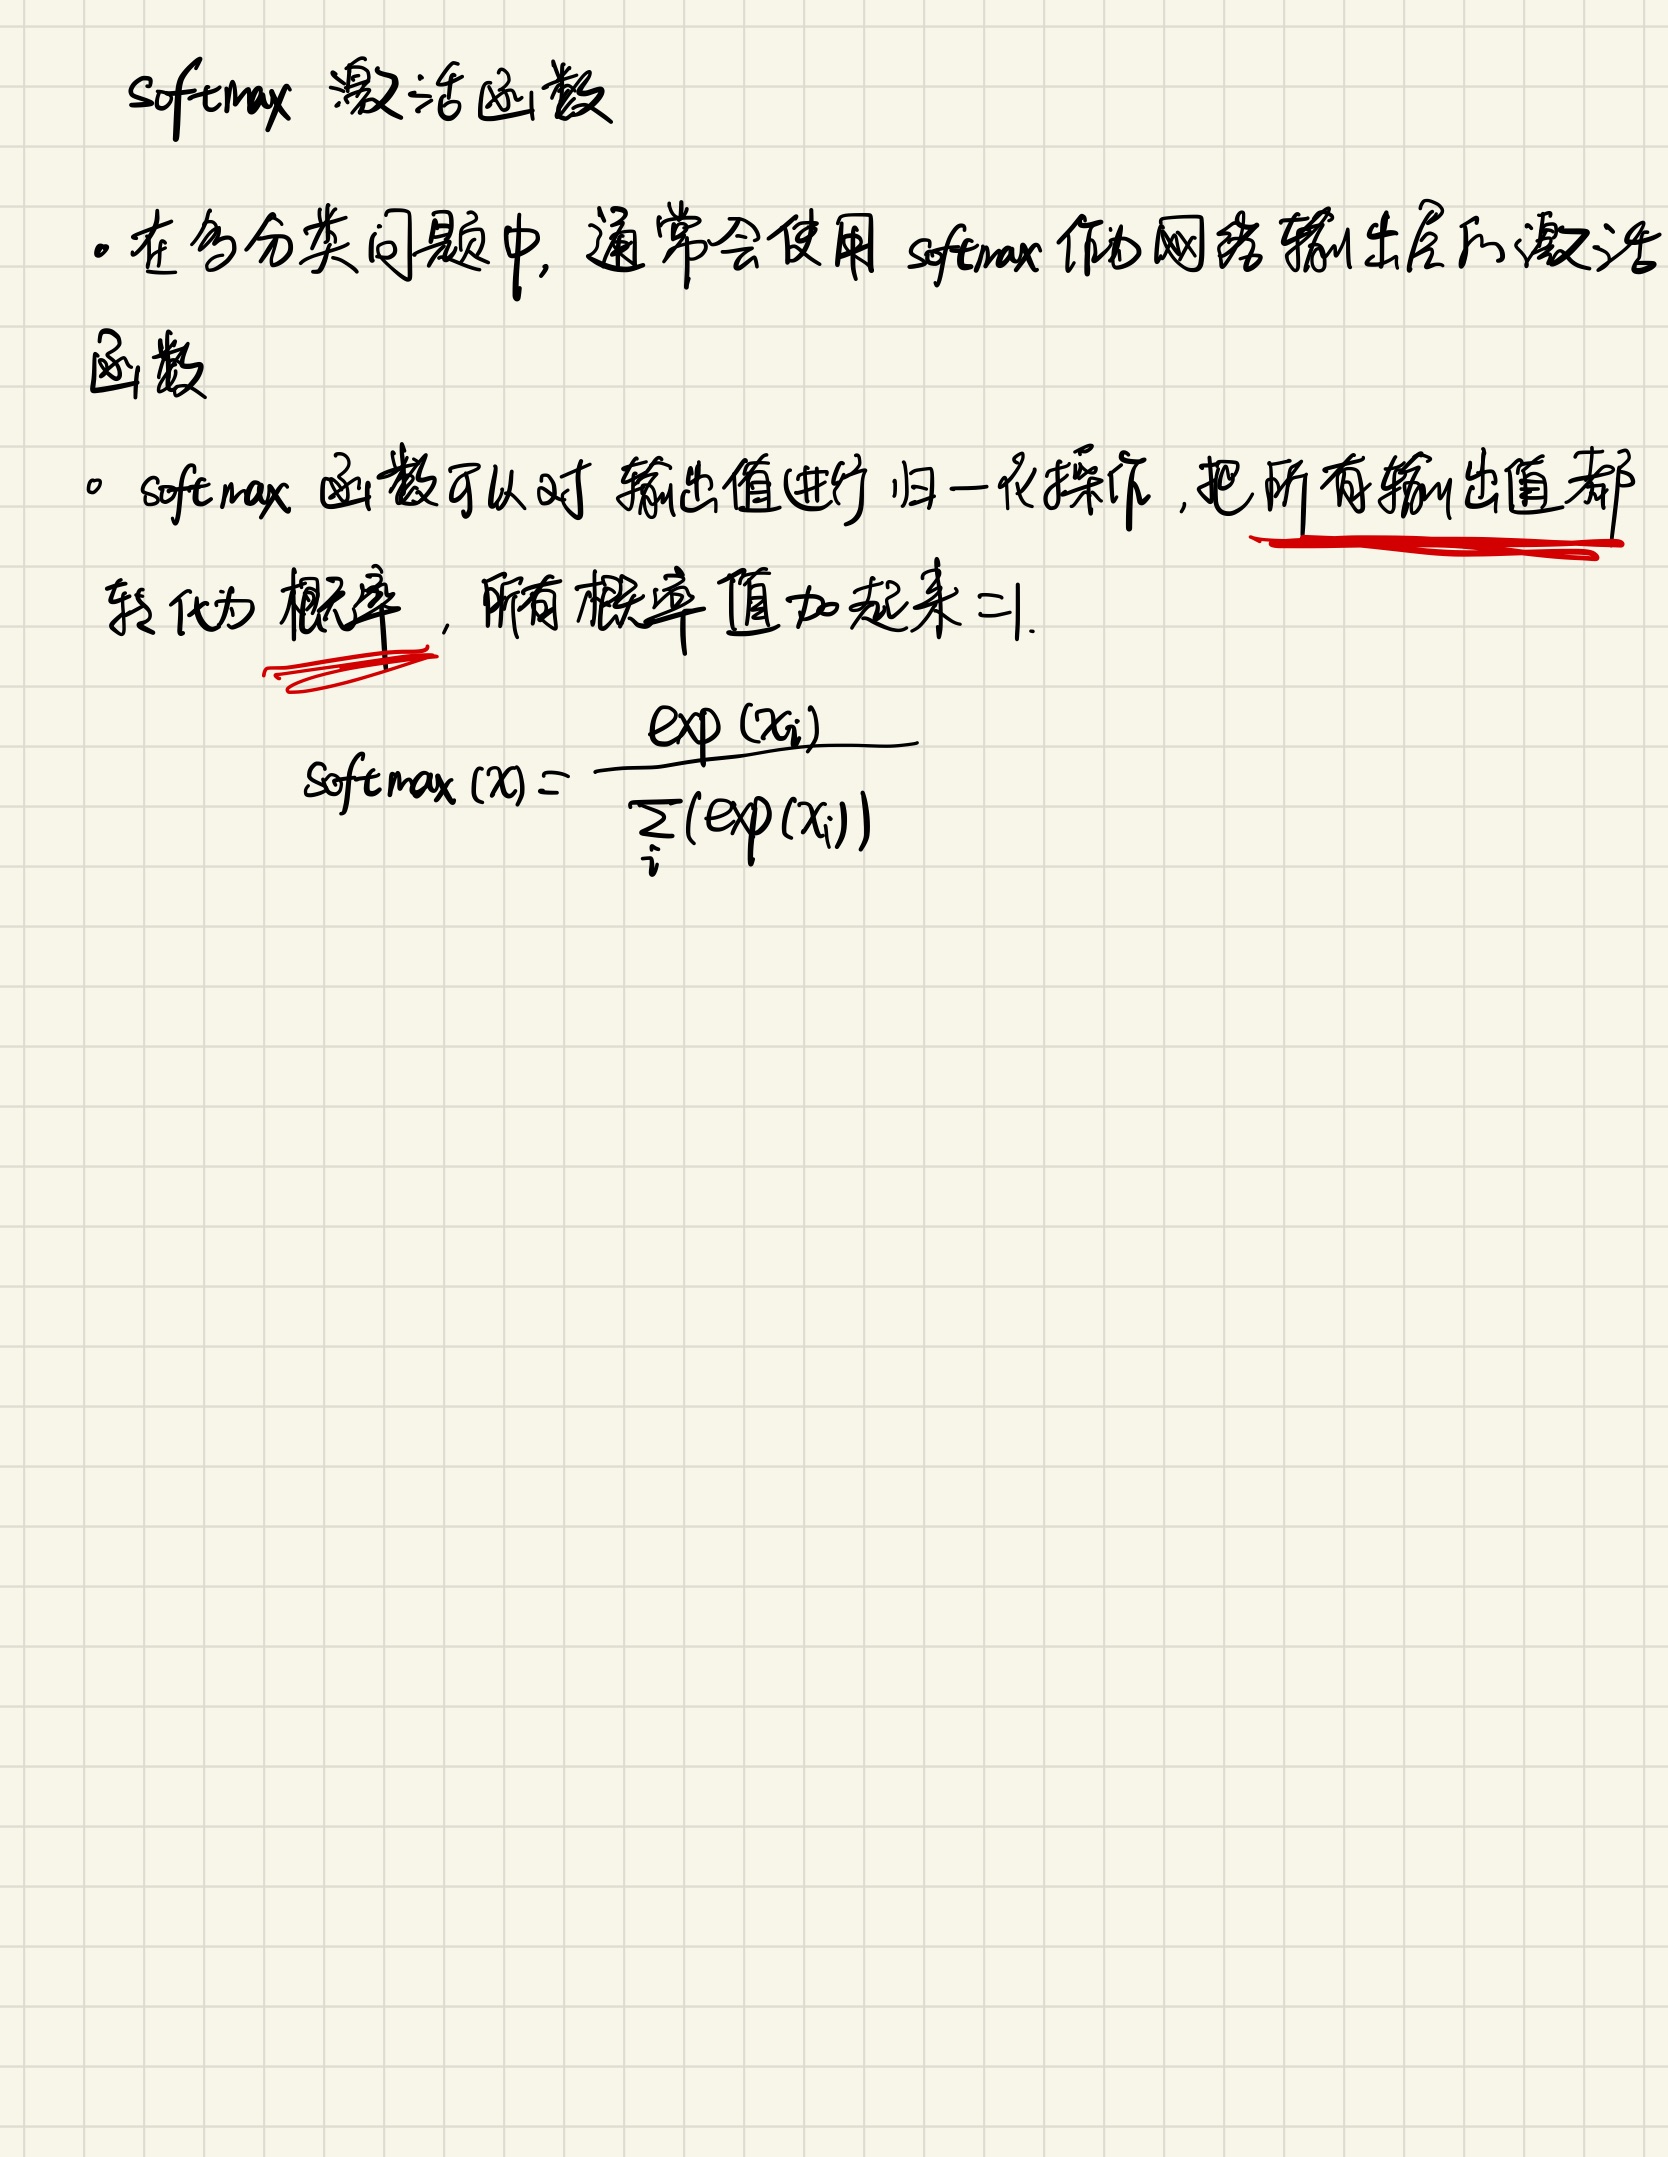 softmax 激活函数
• 在多分类问题中, 通常会使用 softmax 作为网络输出层的激活
函数
• softmax 函数可以对输出值进行归一化操作, 把所有输出值都
转化为概率, 所有概率值加起来=1.
softmax(x) = exp(xi) / ∑i(exp(xi))